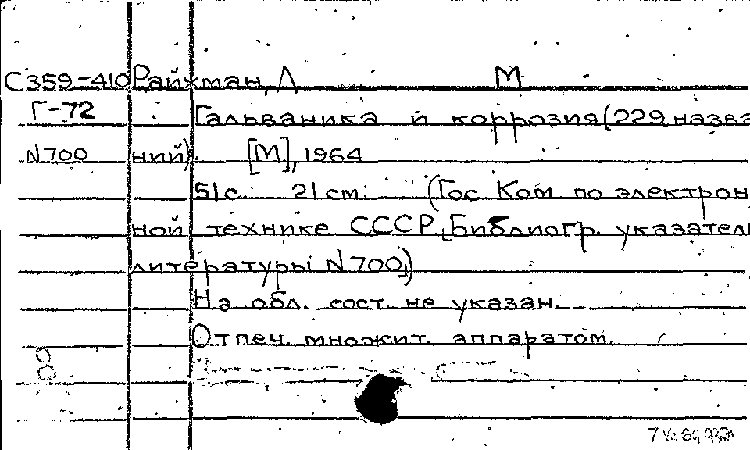 С359-410 Райхман, Л М
Г-72 Гальваника и коррозия (229 назва
N700 ний). [М], 1964
51с. 21 см. (Гос Ком по электрон
ной технике СССР. [Библиогр. указатель
литературы N700])
На обл. сост. не указан.
Отпеч. множит. аппаратом.